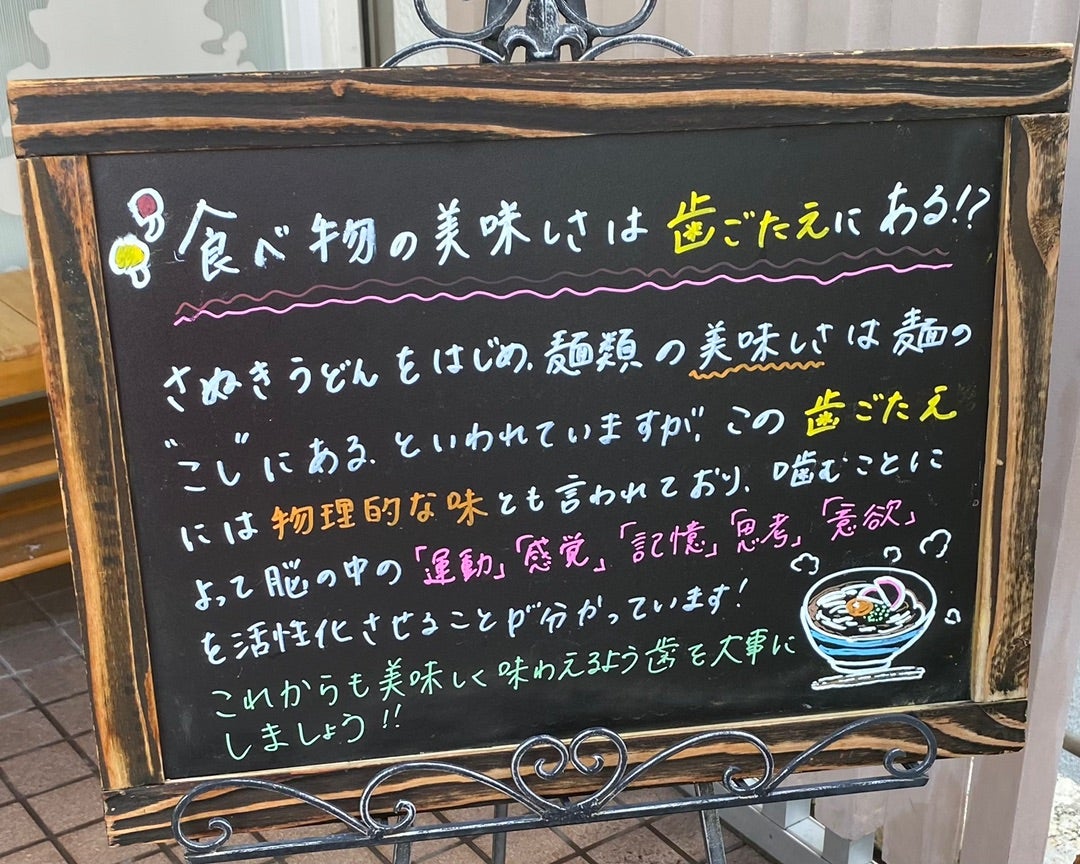 食べ物の美味しさは歯ごたえにある!?
さぬきうどんをはじめ、麺類の美味しさは麺の
"こし"にある、といわれていますが、この歯ごたえ
には物理的な味とも言われており、噛むことに
よって脳の中の「運動」「感覚」「記憶」「思考」「意欲」
を活性化させることが分かっています!
これからも美味しく味わえるよう歯を大事に
しましょう!!